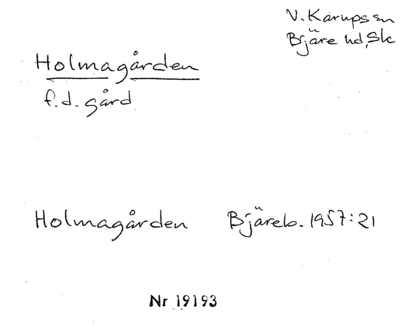 V. Karups sn
Bjäre hd, Sk
Holmagården
f.d. gård
Holmagården Bjäreb. 1957:21
Nr 19193